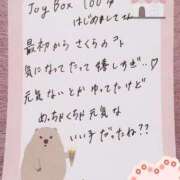 Joy Box 100分
はじめまして
最初から さくらのコト
気になってたって 嬉しすぎ…♡
元気ないとか ゆってたけど
めっちゃくちゃ 元気な
いい子だったね??